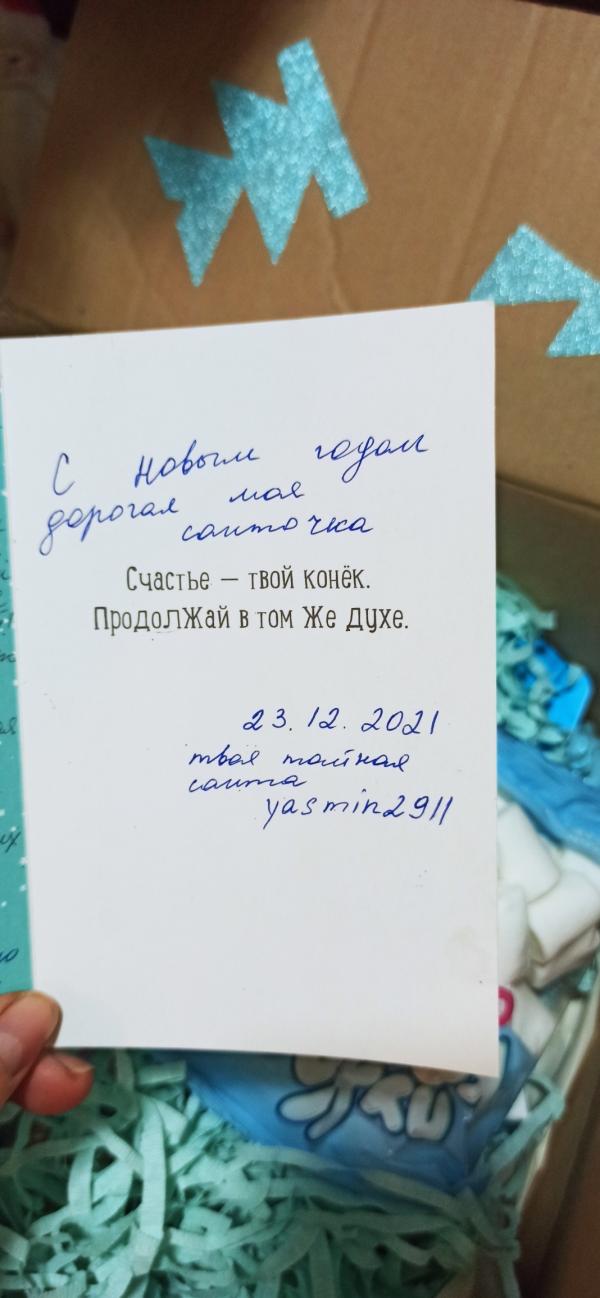 С новым годом
дорогая моя
санточка
Счастье – твой конёк.
Продолжай в том же духе.
23.12.2021
твоя тайная
санта
yasmin2911